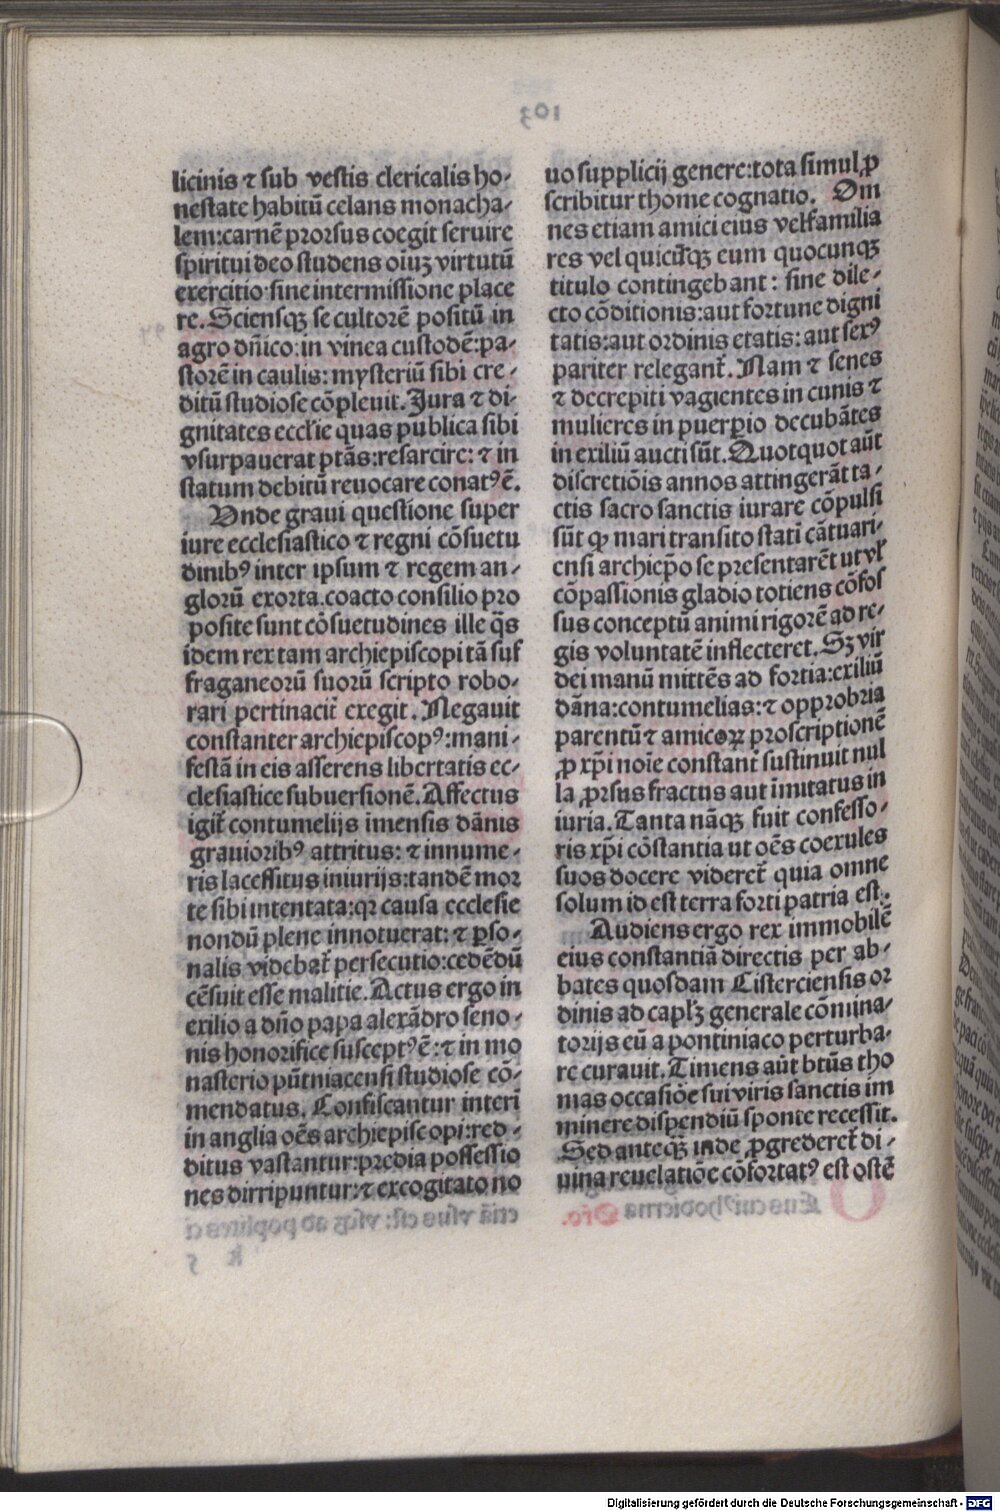 licinis ⁊ sub vestis clericalis ho-
nestate habitū celans monacha-
lem:carnē prorsus coegit seruire
spiritui deo studens oīuꝫ virtutū
exercitio:sine intermissione place
re. Sciensqꝫ se cultorē positū in
agro dn̄ico: in vinea custodē: pa-
storē in caulis: mysteriū sibi cre-
ditū studiose cōpleuit. Jura ⁊ di-
gnitates eccl'ie quas publica sibi
vsurpauerat ptās: resarcire: ⁊ in
statum debitū reuocare conatꝰ ē.
Unde graui questione super
iure ecclesiastico ⁊ regni cōsuetu
dinibꝰ inter ipsum ⁊ regem an-
glorū exorta. coacto consilio pro
posite sunt cōsuetudines ille q̄s
idem rex tam archiepiscopi tā suf
fraganeorū suorū scripto robo-
rari pertinacit̄ exegit. Negauit
constanter archiepiscopꝰ: mani-
festā in eis asserens libertatis ec-
clesiastice subuersionē. Affectus
igit̄ contumelijs īmensis dānis
grauioribꝰ attritus: ⁊ innume-
ris lacessitus iniurijs: tandē mor
te sibi intentata: qꝛ causa ecclesie
nondū plene innotuerat: ⁊ ꝑso-
nalis videbat̄ persecutio: cedēdū
cēsuit esse malitie. Actus ergo in
exilio a dn̄o papa alexādro seno-
nis honorifice susceptꝰ ē: ⁊ in mo
nasterio pūtniacensi studiose cō-
mendatus. Confiscantur interī
in anglia oēs archiepiscopi: red-
ditus vastantur: predia possessio
nes dirripuntur: ⁊ excogitato no
uo supplicij genere: tota simul ꝓ
scribitur thome cognatio. Om
nes etiam amici eius vel familia
res vel quicūqꝫ eum quocunqꝫ
titulo contingebant: sine dile-
cto cōditionis: aut fortune digni
tatis: aut ordinis etatis: aut sexꝰ
pariter relegant̄. Nam ⁊ senes
⁊ decrepiti vagientes in cunis ⁊
mulieres in puerperio decubātes
in exiliū aucti sūt. Quotquot aūt
discretiōis annos attingerāt ta-
ctis sacro sanctis iurare cōpulsi
sūt ꝙ mari transito statī cātuari-
ensi archiep̄o se presentarēt ut vl̕
cōpassionis gladio totiens cōfos
sus conceptū animi rigorē ad re-
gis voluntatē inflecteret. Sꝫ vir
dei manū mittēs ad fortia: exiliū
dāna: contumelias: ⁊ opprobria
parentū ⁊ amicoꝝ proscriptionē
ꝓ xp̄i noīe constant̄ sustinuit nul
la ꝓrsus fractus aut īmitatus in
iuria. Tanta nāqꝫ fuit confesso-
ris xp̄i cōstantia ut oēs coexules
suos docere videret̄ quia omne
solum id est terra forti patria est.
Audiens ergo rex immobilē
eius constantiā directis per ab-
bates quosdam Cisterciensis or
dinis ad capl'ꝫ generale cōmina-
torijs eū a pontiniaco perturba-
re curauit. Timens aūt btūs tho
mas occasiōe sui viris sanctis im
minere dispendiū sponte recessit.
Sed anteqꝫ̄ inde ꝓgrederet̄ di-
uina reuelatiōe cōfortatꝰ est ostē
Digitalisierung gefördert durch die Deutsche Forschungsgemeinschaft - DFG